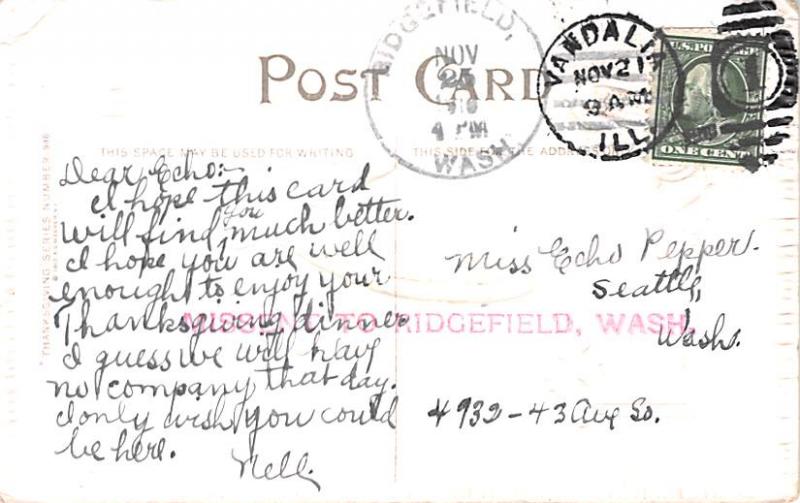 POST CARD
RIDGEFIELD,
NOV
25
4 PM
WASH.
VANDALIA
NOV 21
9 AM
ILL.
U.S. POSTAGE
ONE CENT
1
THIS SPACE MAY BE USED FOR WRITING
THIS SIDE FOR THE ADDRESS
THANKSGIVING SERIES NUMBER
Dear Echo:-
I hope this card
will find you much better.
I hope you are well
enought to enjoy your
Thanksgiving dinner
I guess we will have
no company that day.
I only wish you could
be here.
Nell.
MISSENT TO RIDGEFIELD, WASH.
Miss Echo Pepper.
Seattle,
Wash.
4932-43 Ave So.